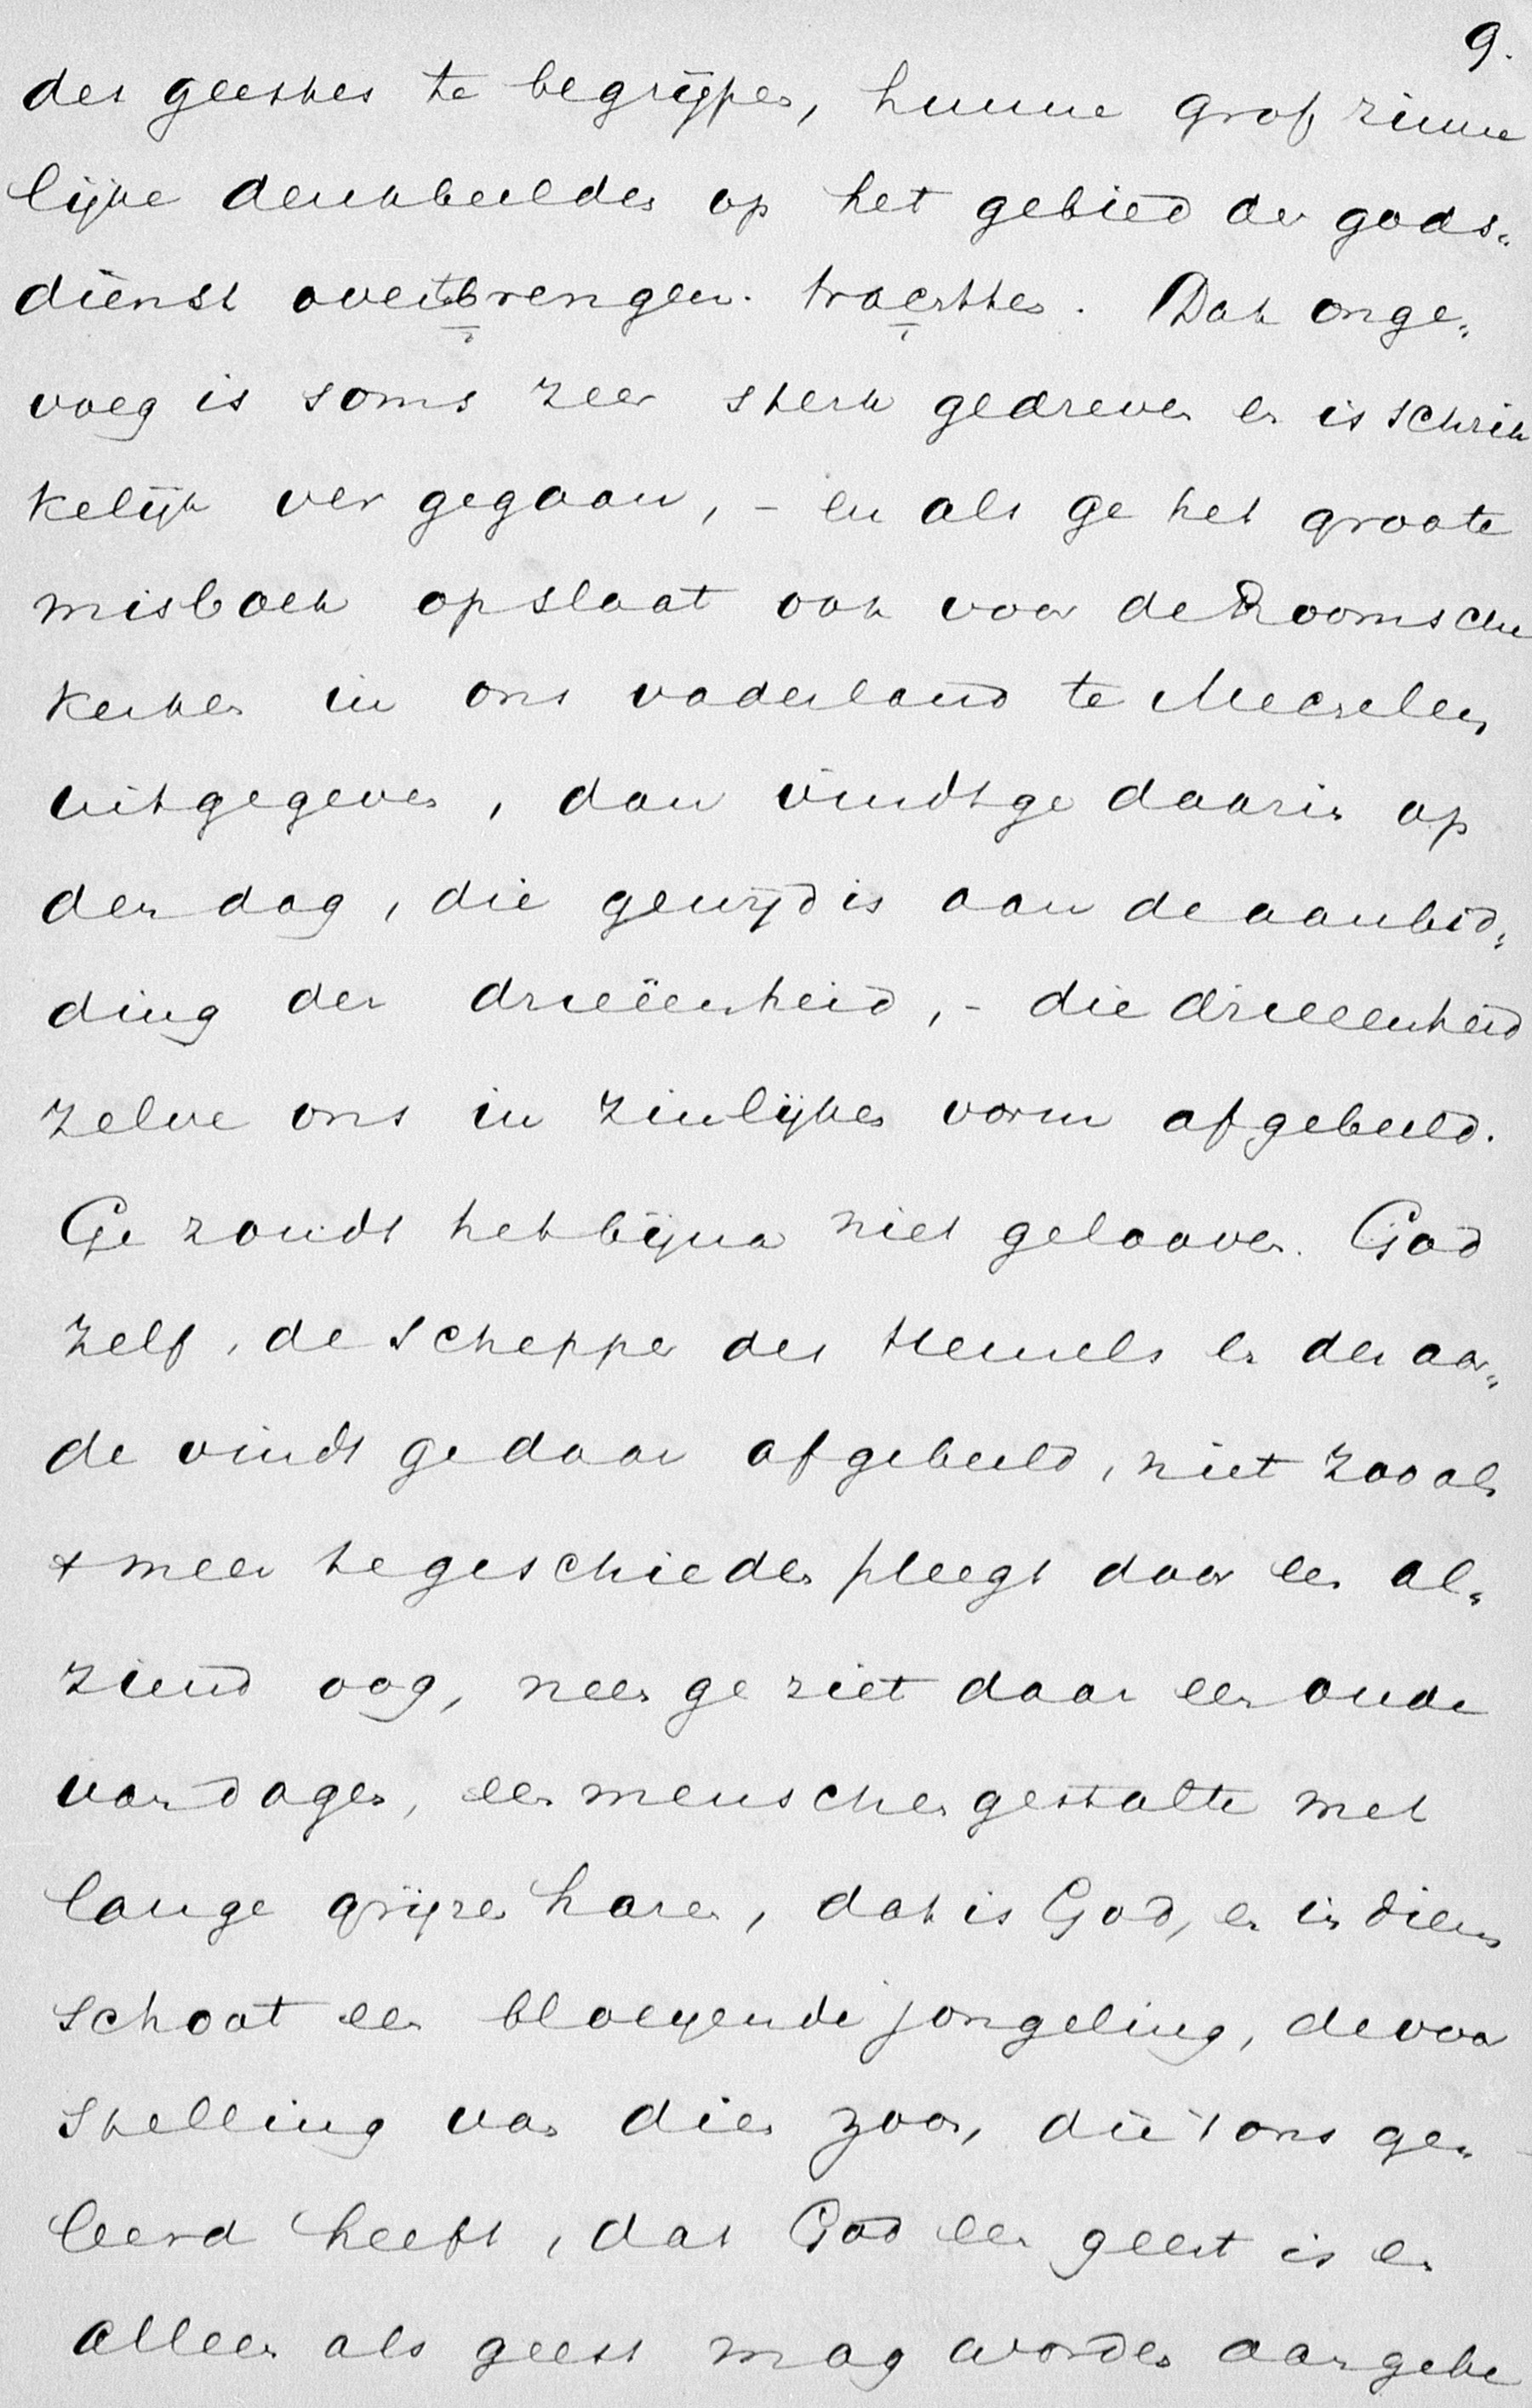 9.
des geestes te begrijpen, hunne grof zinne
lijke denkbeelden op het gebied der gods„
dienst overtebrengen. trachtten. Dat onge„
voeg is soms zeer sterk gedreven en is schrik
kelijk ver gegaan, – en als ge het groote
misboek opslaat ook voor de Roomsche
kerken in ons vaderland te Mechelen
uitgegeven, dan vindt ge daarin op
den dag, die gewijd is aan de aanbid„
ding der drieëenheid, – die drieeenheid
zelve ons in zinlijken vorm afgebeeld.
Ge zoudt het bijna niet gelooven. God
zelf, de Schepper des Hemels en der aar„
de vindt ge daar afgebeeld, niet zooals
meer te geschieden pleegt door een al„
ziend oog, neen ge ziet daar een oude
van dagen, een menschengestalte met
lange grijze haren, dat is God, en in diens
schoot een bloeyende jongeling, de voor
stelling van dien zoon, die 't ons ge„
leerd heeft, dat God een geest is en
alleen als geest mag worden aangebe